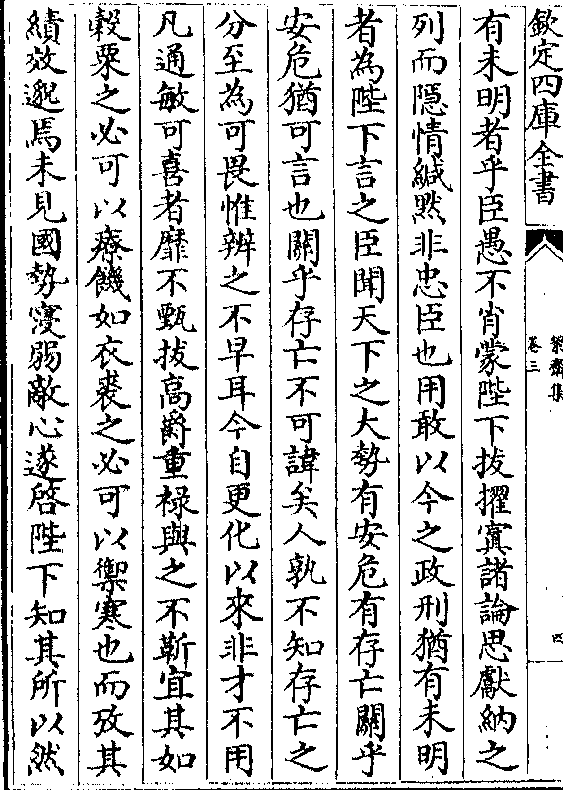 欽定四庫全書
絜齋集
卷三
四
有未明者乎臣愚不肖蒙陛下拔擢寘諸論思獻納之
列而隠情緘黙非忠臣也用敢以今之政刑猶有未明
者為陛下言之臣聞天下之大勢有安危有存亡關乎
安危猶可言也關乎存亡不可諱矣人孰不知存亡之
分至為可畏惟辨之不早耳今自更化以來非才不用
凡通敏可喜者靡不甄拔高爵重禄與之不靳宜其如
穀粟之必可以療饑如衣裘之必可以禦寒也而攷其
績效邈焉未見國勢寖弱敵心遂啓陛下知其所以然